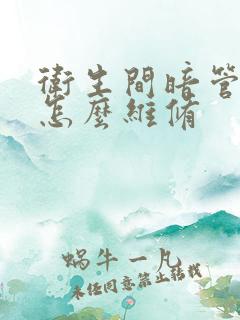 衛生間暗管
怎麽維脩
蝸牛一凡
未经同意禁止转载